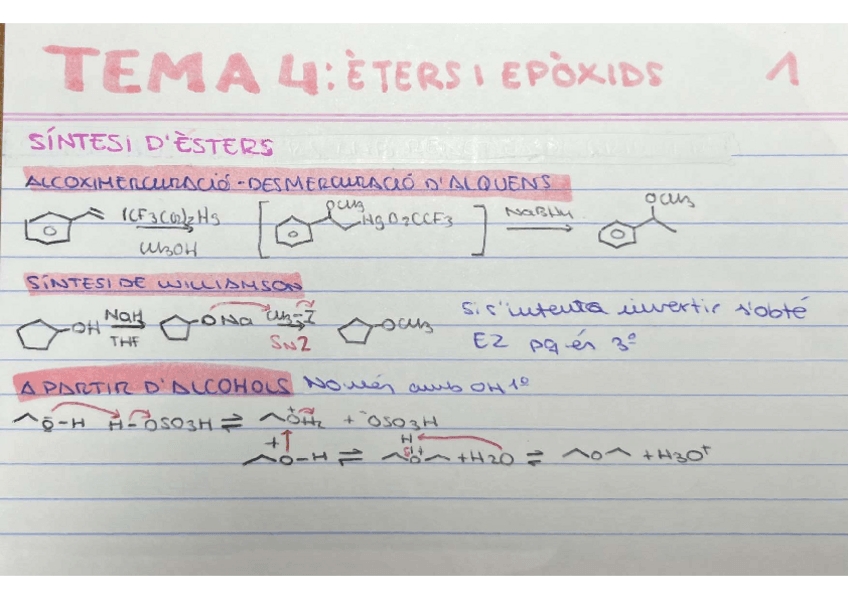 TEMA 4: ÈTERS I EPÒXIDS 1
SÍNTESI D'ÈSTERS
ALCOXIMERCURACIÓ-DESMERCURACIÓ D'ALQUENS
(CF3CO2)2Hg [ OCH3 HgO2CCF3 ] NaBH4 OCH3
CH3OH
SÍNTESI DE WILLIAMSON
OH NaH ONa CH3-I OCH3 Si s'intenta invertir s'obté
THF SN2 E2 pq és 3º
A PARTIR D'ALCOHOLS NOMÉS amb OH 1º
O-H H-OSO3H ⇌ +OH2 + -OSO3H
+ O-H ⇌ H O+ + H2O ⇌ O + H3O+